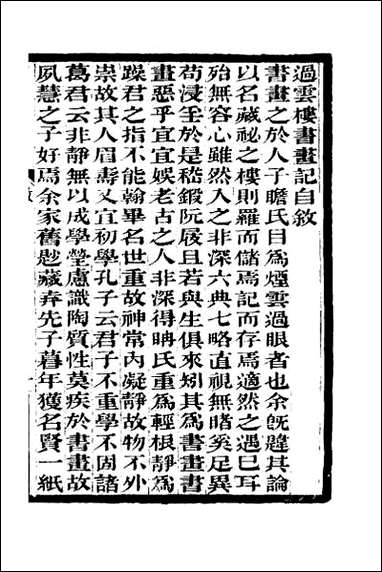 過雲樓書畫記自敘
書畫之於人子瞻氏目爲煙雲過眼者也余旣韙其論
以名藏祕之樓則羅而儲焉記而存焉適然之遇已耳
殆無容心雖然入之非深六典七略直視無睹奚足異
苟浸壬於是嵇鍛阮屐且若與生俱來矧其爲書畫書
畫惡乎宜宜娛老古之人非深得㫾氏重爲輕根靜爲
躁君之指不能翰畢名世重故神常內凝靜故物不外
祟故其人眉壽又宜初學孔子云君子不重學不固諸
葛君云非靜無以成學瑩慮識陶質性莫疾於書畫故
夙慧之子好焉余家舊尠藏弆先子暮年獲名賢一紙